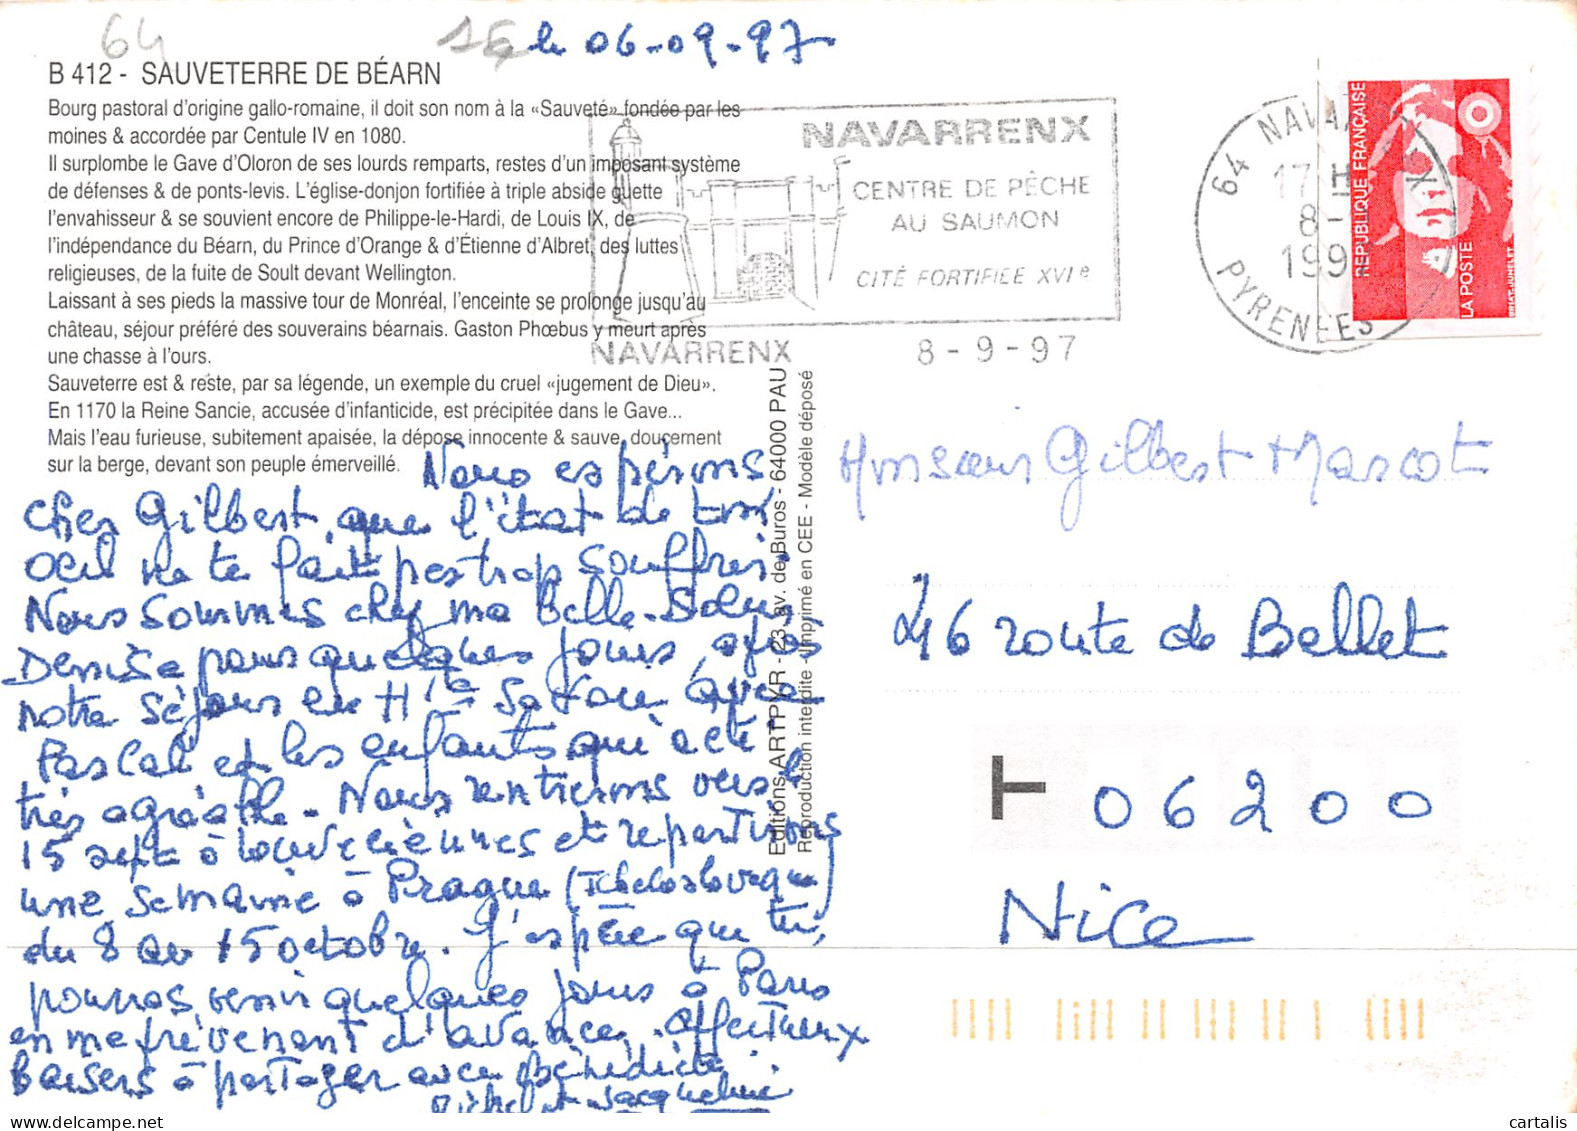 64
le 06-09-97
B 412 - SAUVETERRE DE BÉARN
Bourg pastoral d'origine gallo-romaine, il doit son nom à la «Sauveté» fondée par les
moines & accordée par Centule IV en 1080.
Il surplombe le Gave d'Oloron de ses lourds remparts, restes d'un imposant système
de défenses & de ponts-levis. L'église-donjon fortifiée à triple abside guette
l'envahisseur & se souvient encore de Philippe-le-Hardi, de Louis IX, de
l'indépendance du Béarn, du Prince d'Orange & d'Étienne d'Albret, des luttes
religieuses, de la fuite de Soult devant Wellington.
Laissant à ses pieds la massive tour de Monréal, l'enceinte se prolonge jusqu'au
château, séjour préféré des souverains béarnais. Gaston Phœbus y meurt après
une chasse à l'ours.
Sauveterre est & reste, par sa légende, un exemple du cruel «jugement de Dieu».
En 1170 la Reine Sancie, accusée d'infanticide, est précipitée dans le Gave...
Mais l'eau furieuse, subitement apaisée, la dépose innocente & sauve, doucement
sur la berge, devant son peuple émerveillé.
NAVARRENX
CENTRE DE PÊCHE
AU SAUMON
CITÉ FORTIFIEE XVIe
NAVARRENX
8-9-97
64 NAVARRENX
17 H
8-
199
PYRENEES
REPUBLIQUE FRANÇAISE
LA POSTE
BRIAT-JUMELET
Nous espérons
Cher Gilbert, que l'état de ton
oeil ne te fait pas trop souffrir.
Nous sommes chez ma belle-soeur
Denise pour quelques jours après
notre séjour en Hte Savoie avec
Pascal et les enfants qui a été
très agréable. Nous rentrerons vers le
15 sept à Louveciennes et repartirons
une semaine à Prague (Tchekoslovaquie)
du 8 au 15 octobre. J'espère que tu
pourras venir quelques jours à Paris
en me prévenant d'avance. Affectueux
baisers à partager avec Bénédicte
Michel et Jacqueline
Editions ARTPYR - 23, av. de Buros - 64000 PAU
Reproduction interdite - Imprimé en CEE - Modèle déposé
Monsieur Gilbert Mascot
46 route de Bellet
06200
Nice
cartalis.com